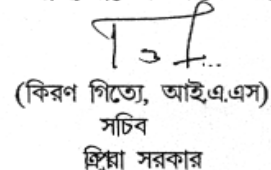 (কিরণ গিত্যে, আই.এ.এস)
সচিব
ত্রিপুরা সরকার